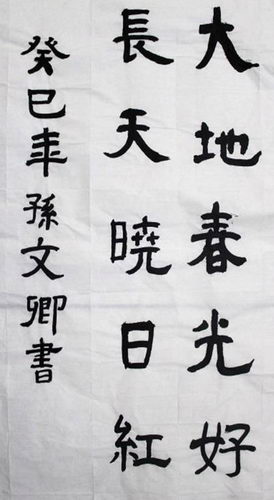 大地春光好
長天曉日紅
癸巳年孫文卿書